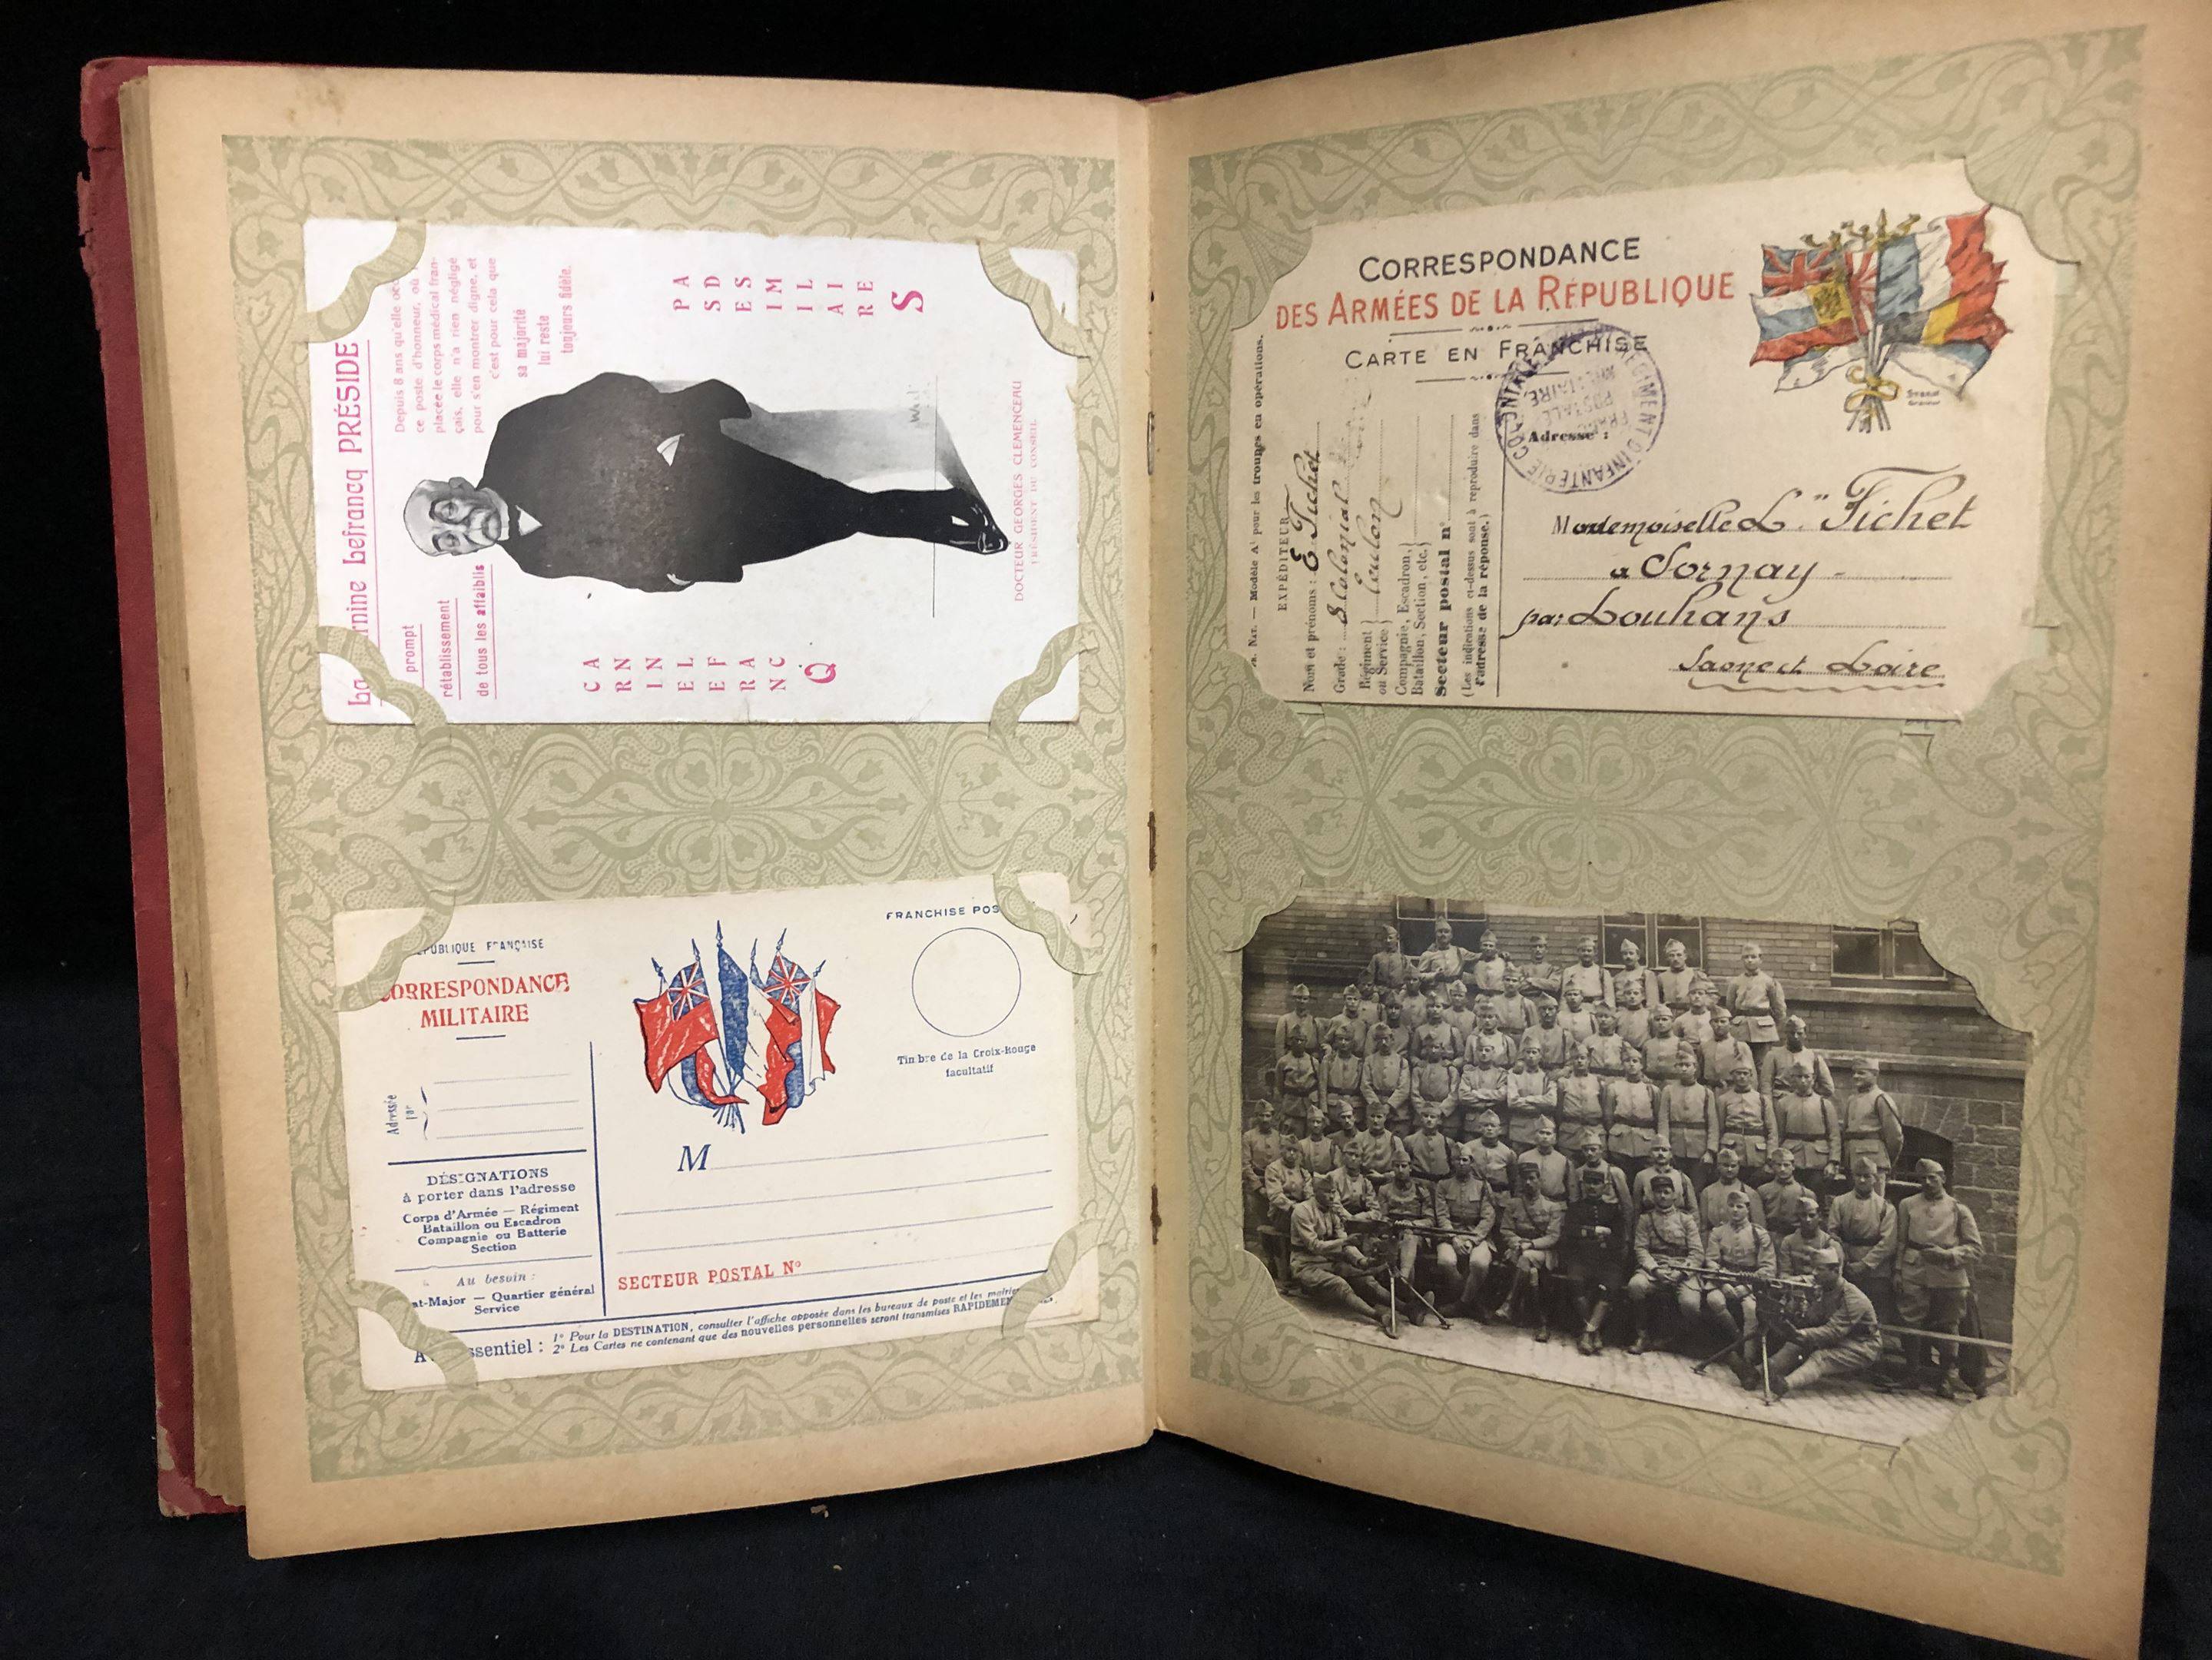 PRÉSIDE
Depuis 8 ans qu'elle
ce poste d'honneur, où
placée le corps médical fran-
çais, elle n'a rien négligé
pour s'en montrer digne, et
c'est pour cela que
sa majorité
lui reste
toujours fidèle.
prompt
rétablissement
de tous les affaiblis
CA PA
RN SD
IN ES
EL IM
EF IL
RA AI
NC RE
Q S
DOCTEUR GEORGES CLEMENCEAU
PRÉSIDENT DU CONSEIL
FRANÇAISE
CORRESPONDANCE
MILITAIRE
Adressée
par
DÉSIGNATIONS
à porter dans l'adresse
Corps d'Armée — Régiment
Bataillon ou Escadron
Compagnie ou Batterie
Section
Au besoin :
Quartier général
Service
FRANCHISE
Timbre de la Croix-Rouge
facultatif
M
SECTEUR POSTAL N°
1° Pour la DESTINATION, consulter l'affiche apposée dans les bureaux de poste et les
2° Les Cartes ne contenant que des nouvelles personnelles seront transmises
CORRESPONDANCE
DES ARMÉES DE LA RÉPUBLIQUE
CARTE EN FRANCHISE
Modèle A pour les troupes en opérations.
EXPÉDITEUR
Nom et prénoms : E Fichet
Grade : 8 Colonial
Régiment
ou Service Toulon
Compagnie, Escadron,
Bataillon, Section, etc.
Secteur postal n°
(Les indications ci-dessus sont à reproduire dans
l'adresse de la réponse.)
Adresse :
Mademoiselle L Fichet
a Sornay
par Louhans
Saone et Loire